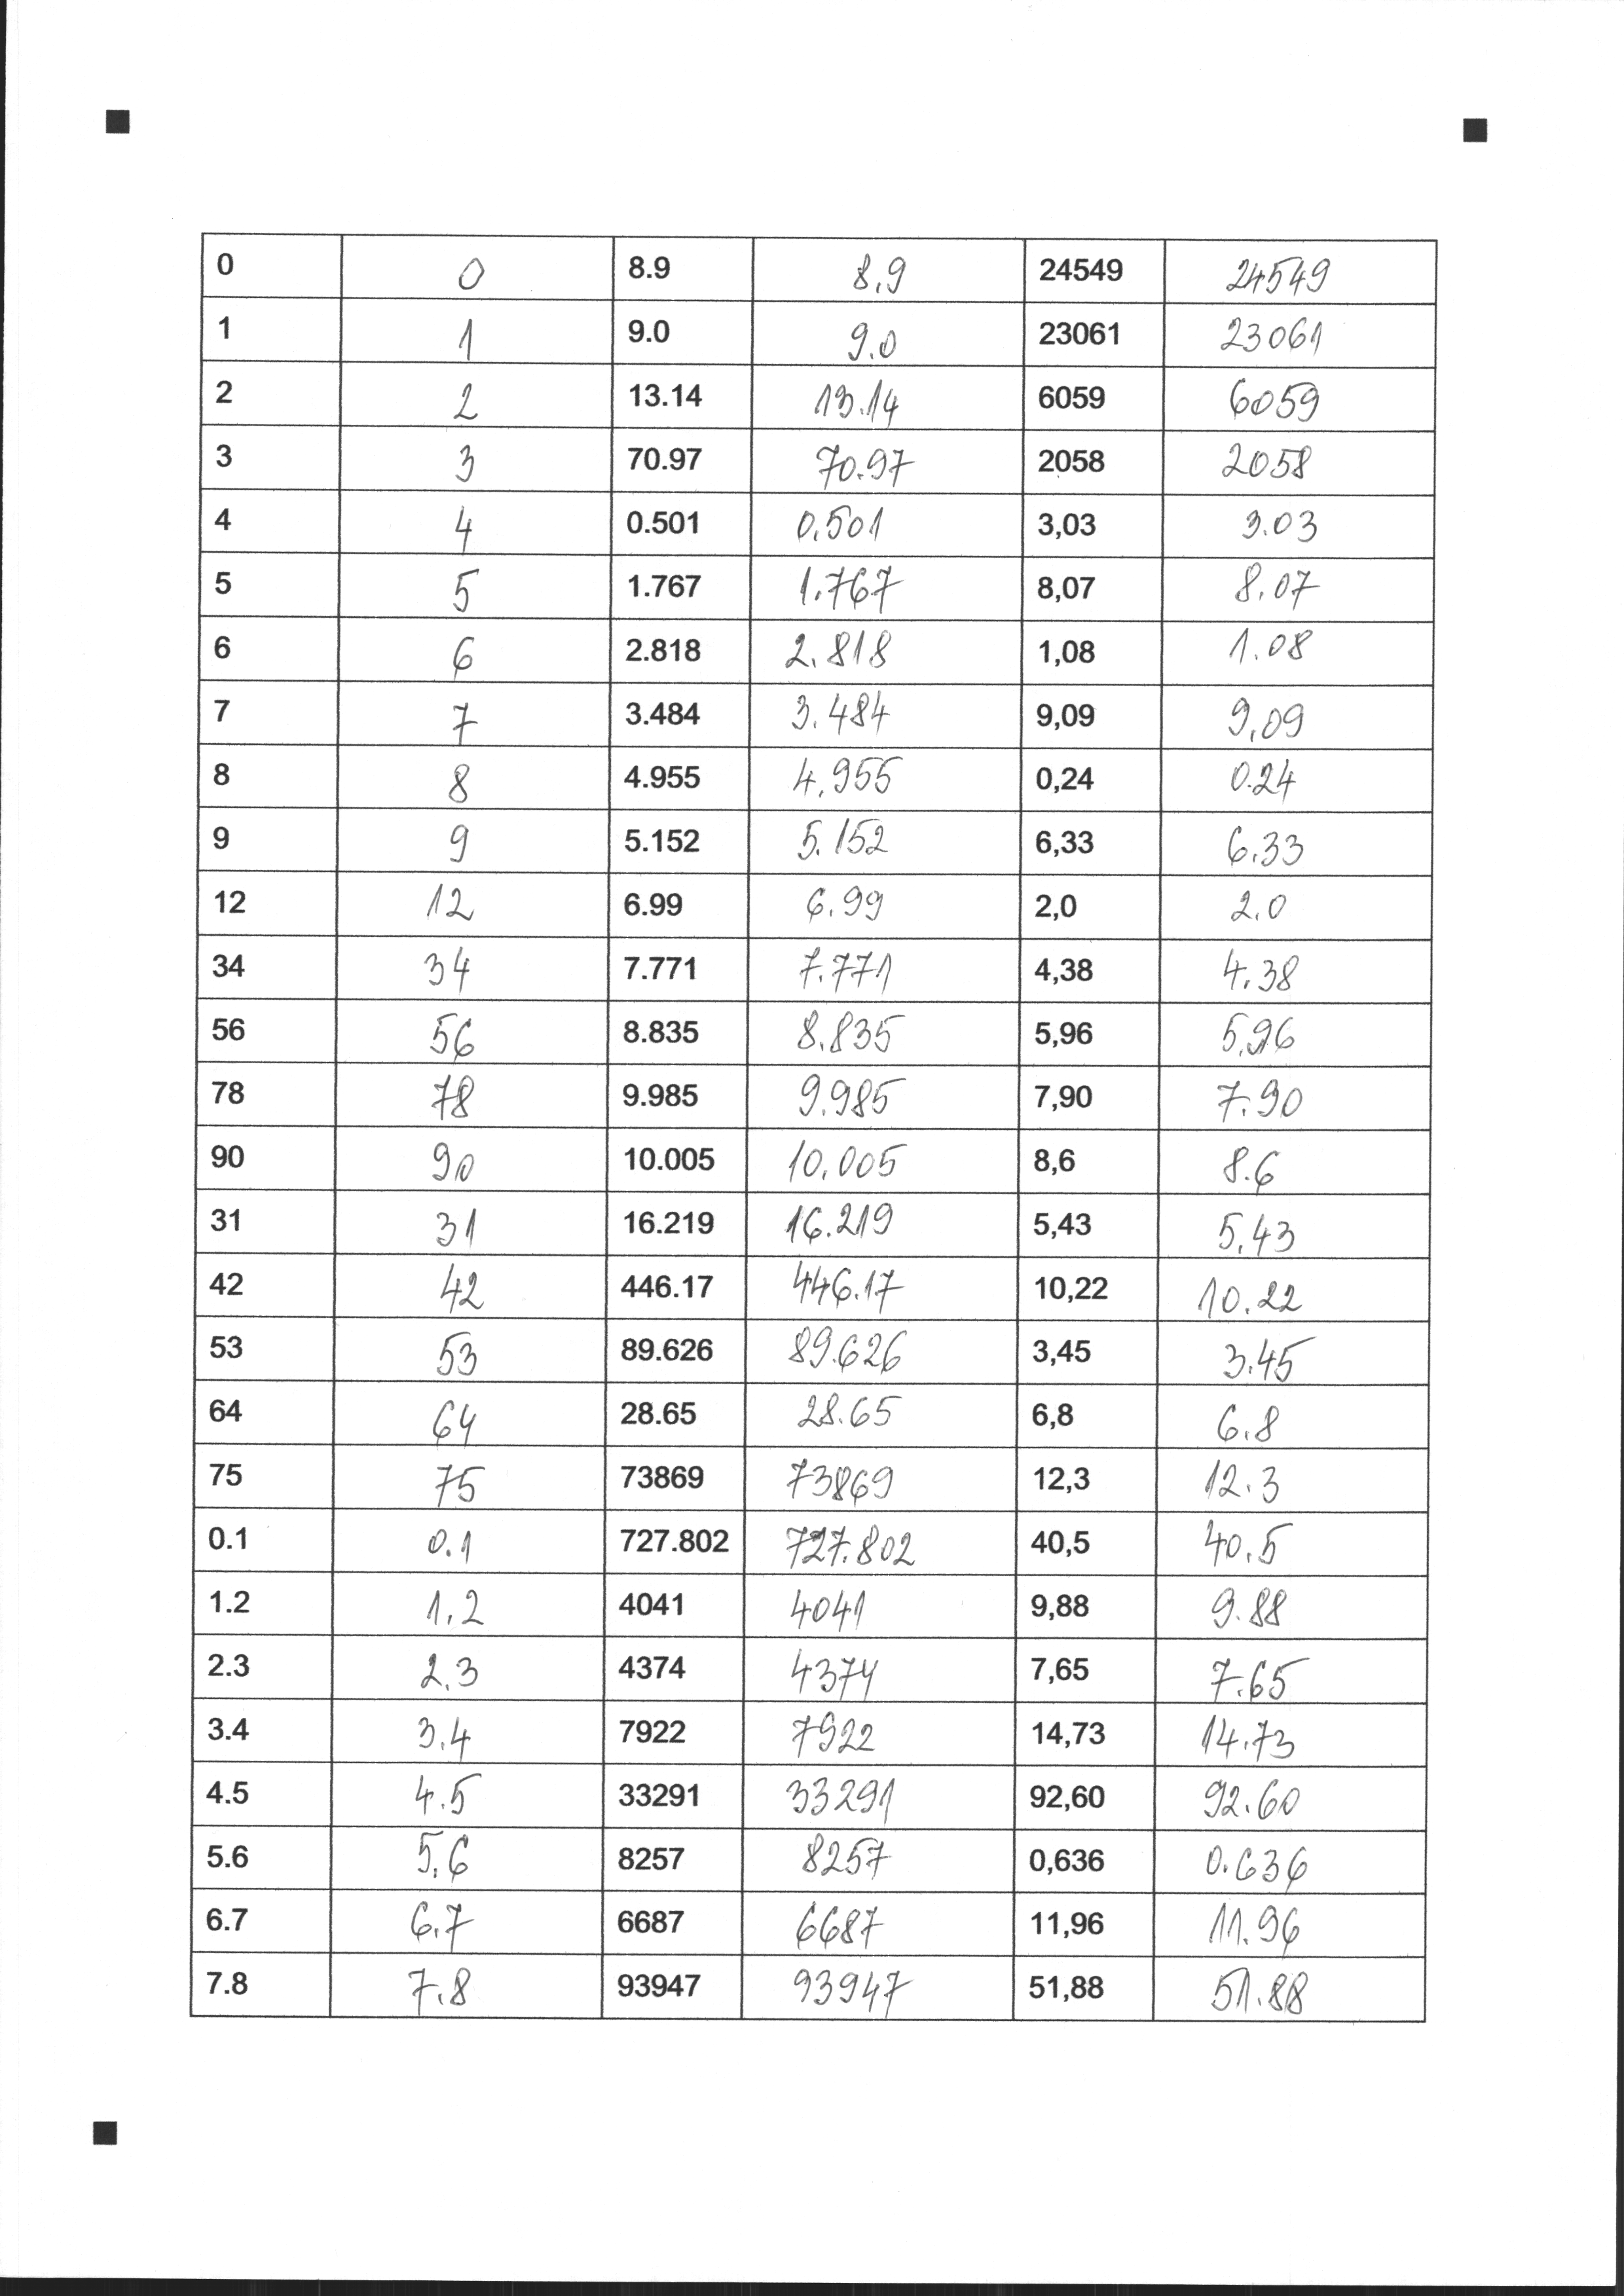 0 0 8.9 8,9 24549 24549
1 1 9.0 9.0 23061 23061
2 2 13.14 13.14 6059 6059
3 3 70.97 70.97 2058 2058
4 4 0.501 0,501 3,03 3.03
5 5 1.767 1.767 8,07 8,07
6 6 2.818 2,818 1,08 1.08
7 7 3.484 3.484 9,09 9,09
8 8 4.955 4,955 0,24 0.24
9 9 5.152 5.152 6,33 6.33
12 12 6.99 6.99 2,0 2.0
34 34 7.771 7.771 4,38 4.38
56 56 8.835 8.835 5,96 5,96
78 78 9.985 9.985 7,90 7.90
90 90 10.005 10,005 8,6 8.6
31 31 16.219 16.219 5,43 5,43
42 42 446.17 446.17 10,22 10.22
53 53 89.626 89.626 3,45 3.45
64 64 28.65 28.65 6,8 6.8
75 75 73869 73869 12,3 12.3
0.1 0.1 727.802 727.802 40,5 40.5
1.2 1.2 4041 4041 9,88 9.88
2.3 2.3 4374 4374 7,65 7.65
3.4 3.4 7922 7922 14,73 14.73
4.5 4.5 33291 33291 92,60 92.60
5.6 5.6 8257 8257 0,636 0.636
6.7 6.7 6687 6687 11,96 11.96
7.8 7.8 93947 93947 51,88 51.88